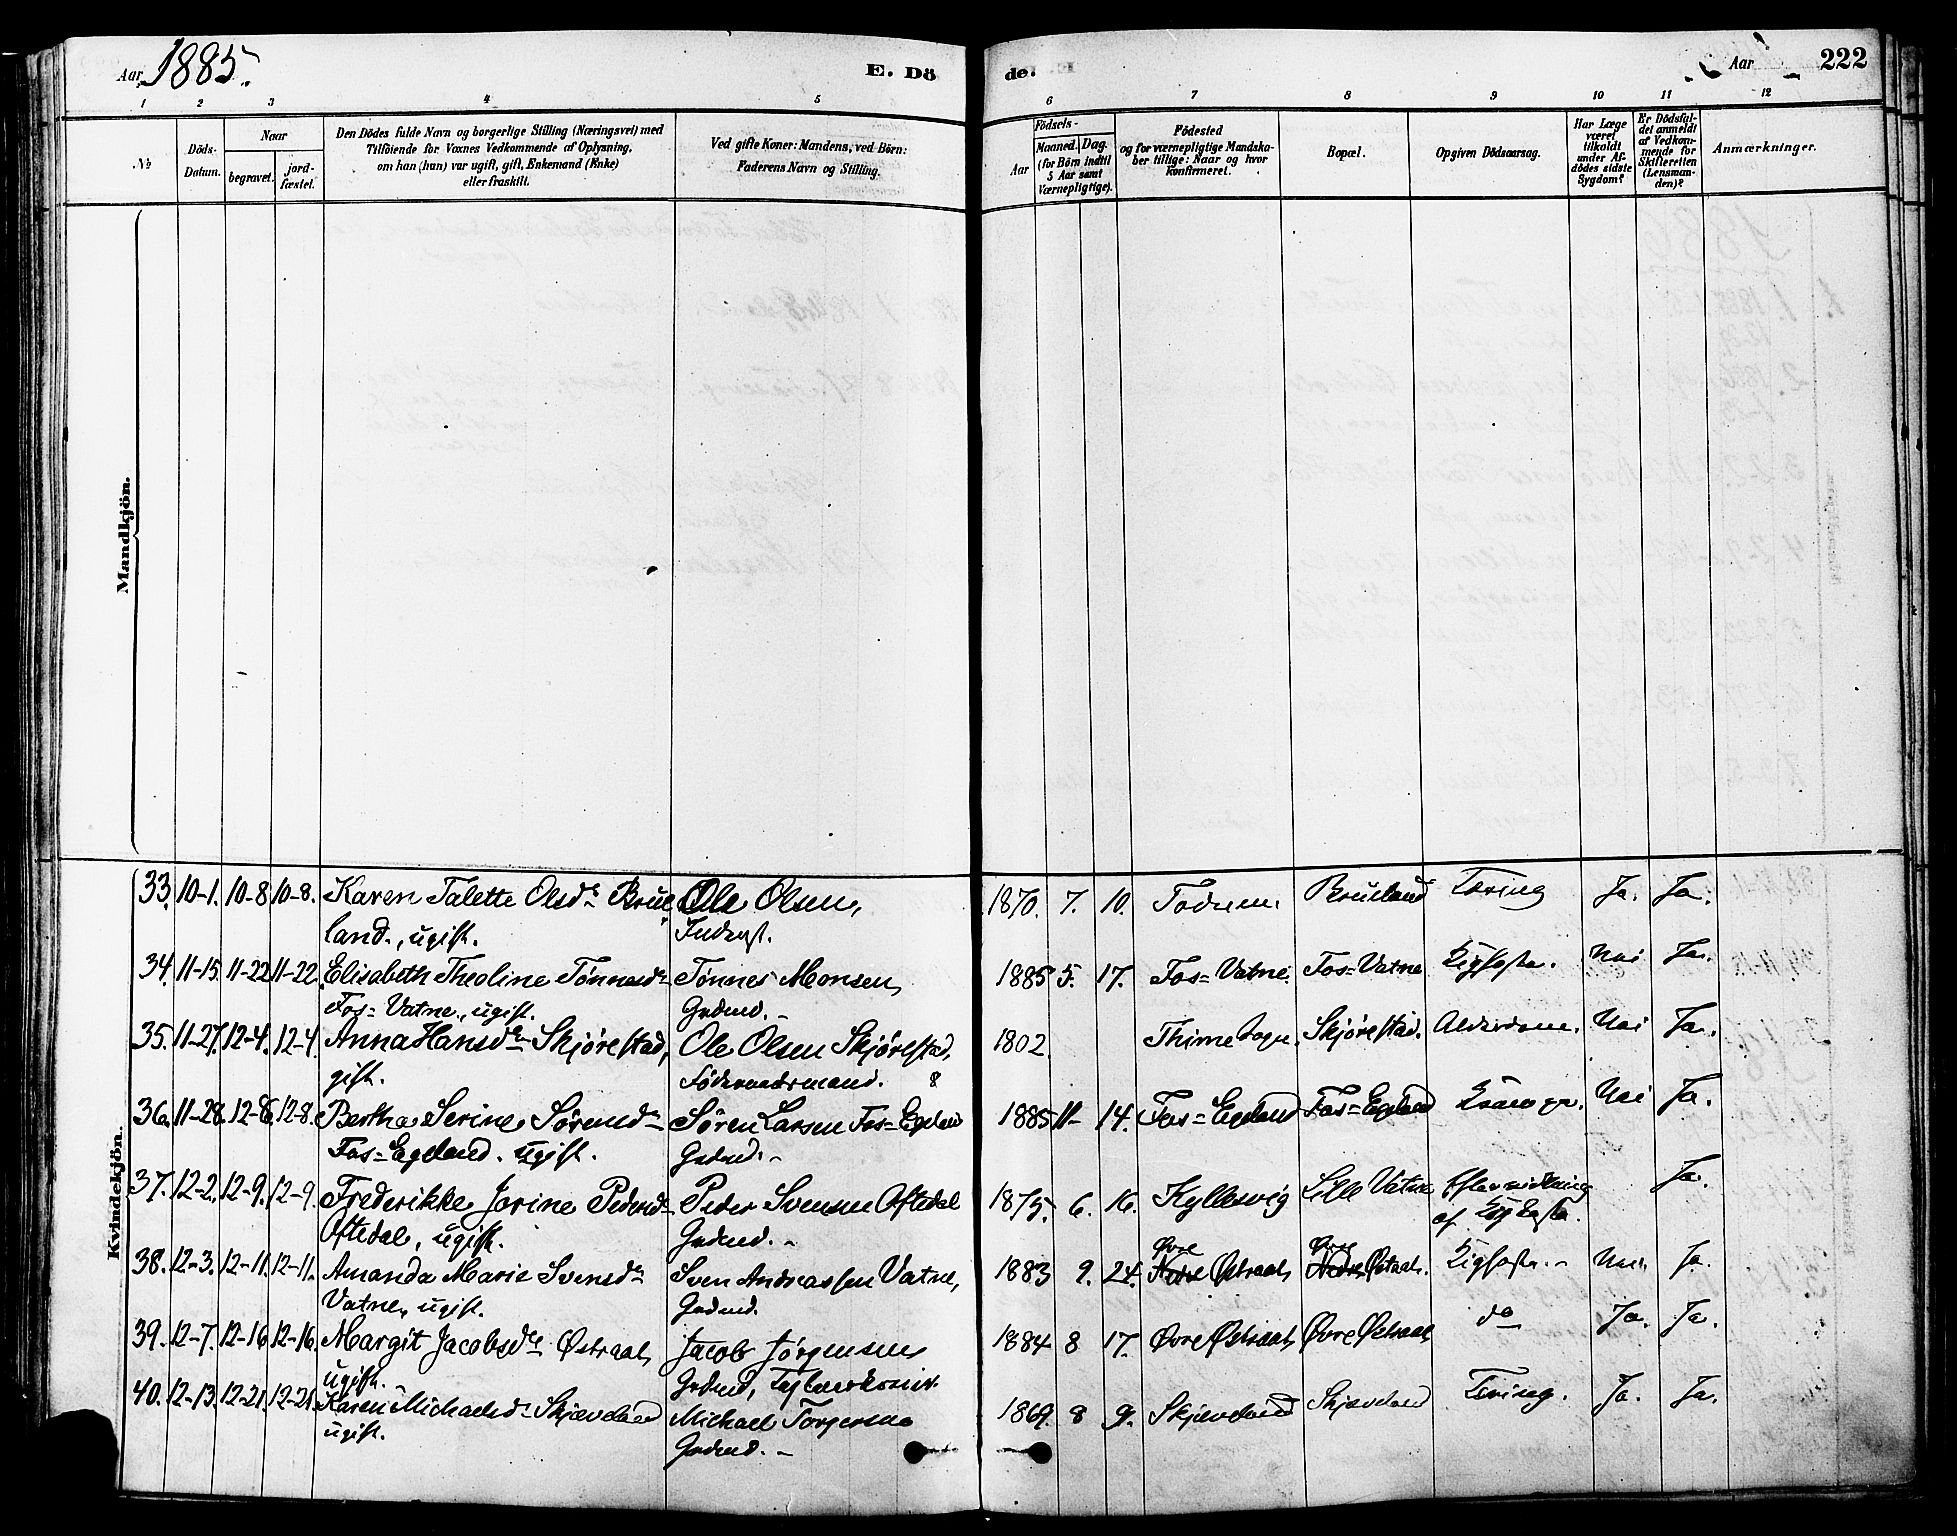 Aar 1885. E. Dö de. Aar 222
1 2 3 4 5 6 7 8 9 10 11 12
No
Döds-Datum.
Naar
begravet.
jord-fæstet.
Den Dödes fulde Navn og borgerlige Stilling (Næringsvei) med
Tilföiende for Voxnes Vedkommende af Oplysning,
om han (hun) var ugift, gift, Enkemand (Enke)
eller fraskilt.
Ved gifte Koner: Mandens, ved Börn:
Faderens Navn og Stilling.
Födsels-
Aar
Maaned. Dag.
(for Börn indtil
5 Aar samt
Værnepligtige).
Födested
og for værnepligtige Mandska-
ber tillige: Naar og hvor
konfirmeret.
Bopæl.
Opgiven Dödsaarsag.
Har Læge
været
tilkaldt
under Af-
dödes sidste
Sygdom?
Er Dödsfal-
det anmeldt
af Vedkom-
mende for
Skifteretten
(Lensman-
den)?
Anmærkninger.
Mandkjön.
Kvindekjön.
33. 10-1. 10-8 10-8. Karen Talette Olsdr Brue Ole Olsen, 1870. 7. 10. Brueland Tæring Ja. Ja.
land., ugift.
34. 11-15. 11-22 11-22. Elisabeth Theoline Tønnesdr Tønnes Monsen, 1885 5. 17. Fos-Vatne. Fos-Vatne Kighoste. Nei Ja.
Fos-Vatne, ugift. Grdmd. -
35. 11-27. 12-4. 12-4. Anna Hansdr Skjørestad, Ole Olsen Skjørestad, 1802. Thime Sogn. Skjørestad. Alderdom. Nei Ja.
gift. Føderaadsmand.
36. 11-28. 12-8. 12-8. Bertha Serine Sørensdr Søren Larsen Fos-Egeland 1885 11- 14. Fos-Egeland Fos-Egeland Nei Ja.
Fos-Egeland. ugift. Grdmd. -
37. 12-2. 12-9. 12-9. Frederikke Jorine Pedersdr Peder Svensen Oftedal 1875. 6. 16. Kyllesvig Lille Vatne Ja.
Oftedal, ugift. Grdmd. - af Kighoste.
38. 12-3. 12-11. 12-11. Amanda Marie Svensdr Sven Andreassen Vatne, 1883 9. 24. Øvre Nedre Østraat, Øvre Nedre Østraat. Kighoste. - Nei. Ja.
Vatne, ugift. Grdmd.
39. 12-7. 12-16 12-16. Margit Jacobsdr Østraat, Jacob Jørgensen, 1884 8 17. Øvre Østraat, Øvre Østraat do Ja. Ja.
ugift. Grdmd, Teglværkseier.
40. 12-13. 12-21. 12-21. Karen Michaelsdr Skjæveland Michael Torgersen 1869. 8 9. Skjæveland Skjæveland Tæring. Ja. Ja.
ugift. Grdmd. -